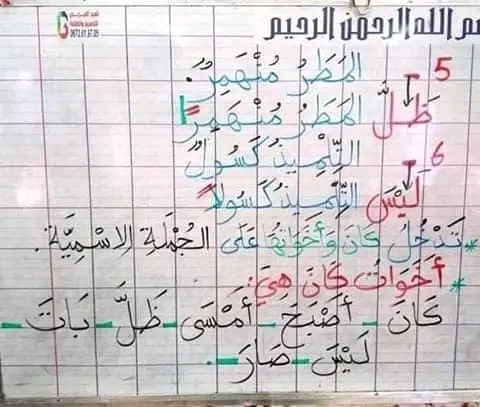 بسم الله الرحمن الرحيم
0672.61.67.05
5 المَطَرُ مُنْهَمِرٌ.
ظَلَّ المَطَرُ مُنْهَمِرًا
6 التِّلْمِيذُ كَسُولٌ
لَيْسَ التِّلْمِيذُ كَسُولاً
* تَدْخُلُ كَانَ وَأَخَوَاتُهَا عَلَى الجُمْلَةِ الاِسْمِيَّةِ.
* أَخَوَاتُ كَانَ هِيَ:
كَانَ - أَصْبَحَ - أَمْسَى - ظَلَّ - بَاتَ -
لَيْسَ - صَارَ.